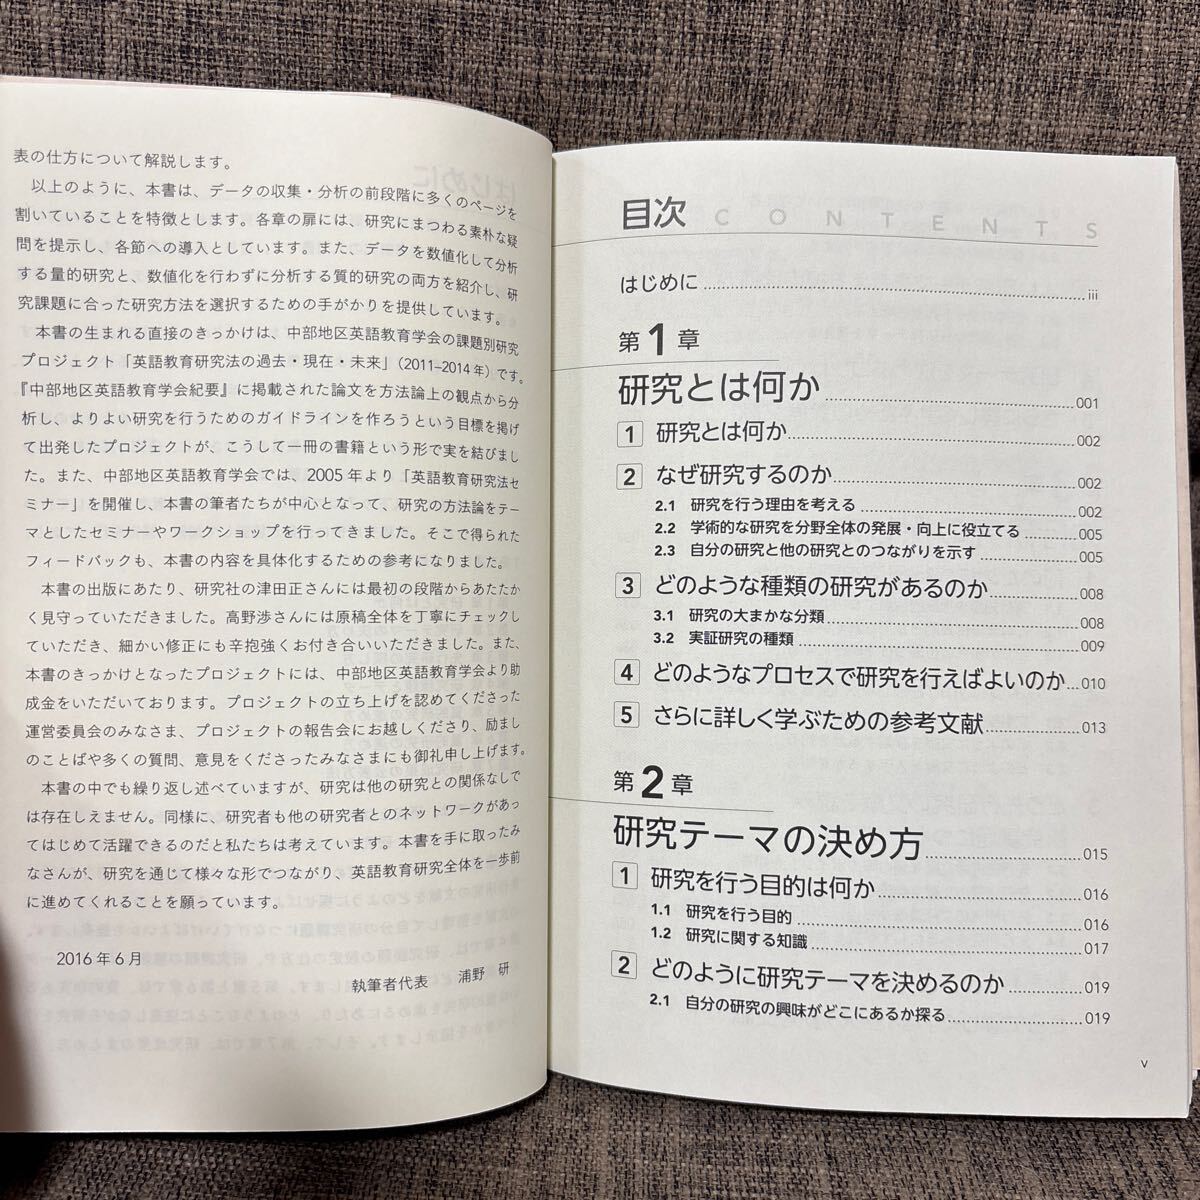 表の仕方について解説します。
以上のように、本書は、データの収集・分析の前段階に多くのページを
割いていることを特徴とします。各章の扉には、研究にまつわる素朴な疑
問を提示し、各節への導入としています。また、データを数値化して分析
する量的研究と、数値化を行わずに分析する質的研究の両方を紹介し、研
究課題に合った研究方法を選択するための手がかりを提供しています。
本書の生まれる直接のきっかけは、中部地区英語教育学会の課題別研究
プロジェクト「英語教育研究法の過去・現在・未来」（2011–2014年）です。
『中部地区英語教育学会紀要』に掲載された論文を方法論上の観点から分
析し、よりよい研究を行うためのガイドラインを作ろうという目標を掲げ
て出発したプロジェクトが、こうして一冊の書籍という形で実を結びまし
た。また、中部地区英語教育学会では、2005年より「英語教育研究法セ
ミナー」を開催し、本書の筆者たちが中心となって、研究の方法論をテー
マとしたセミナーやワークショップを行ってきました。そこで得られた
フィードバックも、本書の内容を具体化するための参考になりました。
本書の出版にあたり、研究社の津田正さんには最初の段階からあたたか
く見守っていただきました。高野渉さんには原稿全体を丁寧にチェックし
ていただき、細かい修正にも辛抱強くお付き合いいただきました。また、
本書のきっかけとなったプロジェクトには、中部地区英語教育学会より助
成金をいただいております。プロジェクトの立ち上げを認めてくださった
運営委員会のみなさま、プロジェクトの報告会にお越しくださり、励まし
のことばや多くの質問、意見をくださったみなさまにも御礼申し上げます。
本書の中でも繰り返し述べていますが、研究は他の研究との関係なしで
は存在しえません。同様に、研究者も他の研究者とのネットワークがあっ
てはじめて活躍できるのだと私たちは考えています。本書を手に取ったみ
なさんが、研究を通じて様々な形でつながり、英語教育研究全体を一歩前
に進めてくれることを願っています。
2016年6月
執筆者代表 浦野 研
目次 CONTENTS
はじめに iii
第1章
研究とは何か 001
1 研究とは何か 002
2 なぜ研究するのか 002
2.1 研究を行う理由を考える 002
2.2 学術的な研究を分野全体の発展・向上に役立てる 005
2.3 自分の研究と他の研究とのつながりを示す 005
3 どのような種類の研究があるのか 008
3.1 研究の大まかな分類 008
3.2 実証研究の種類 009
4 どのようなプロセスで研究を行えばよいのか 010
5 さらに詳しく学ぶための参考文献 013
第2章
研究テーマの決め方 015
1 研究を行う目的は何か 016
1.1 研究を行う目的 016
1.2 研究に関する知識 017
2 どのように研究テーマを決めるのか 019
2.1 自分の研究の興味がどこにあるか探る 019
v